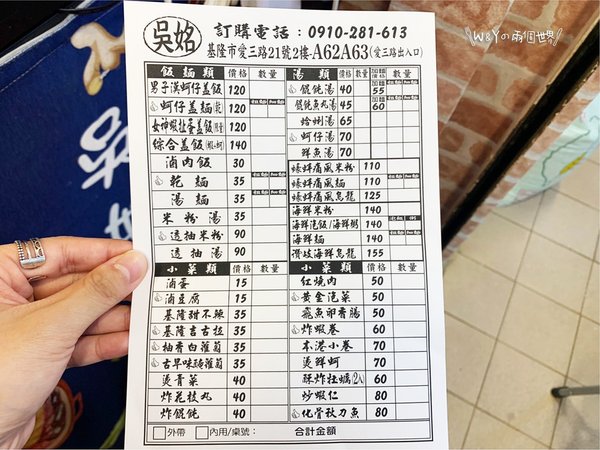 W&Yの兩個世界
吳姳
訂購電話：0910-281-613
基隆市愛三路21號2樓-A62A63(愛三路出入口)
飯麵類 價格 數量
男子漢蚵仔蓋飯 120
蚵仔蓋麵(乾) 120
女神蝦拉蛋蓋飯 120
綜合蓋飯 140
滷肉飯 30
乾麵 35
湯麵 35
米粉湯 35
透抽米粉 90
透抽湯 90
湯類 價格 加麵價格 數量
餛飩湯 40 55
餛飩魚丸湯 45 60
蛤蜊湯 65
蚵仔湯 70
鮮魚湯 70
蠔蚌痛風米粉 110
蠔蚌痛風麵 110
蠔蚌痛風烏龍 125
海鮮米粉 140
海鮮泡飯/海鮮粥 140
海鮮麵 140
讚岐海鮮烏龍 155
小菜類 價格 數量
滷蛋 15
滷豆腐 15
基隆甜不辣 35
基隆吉古拉 35
柚香白蘿蔔 35
古早味醃蘿蔔 35
燙青菜 40
炸花枝丸 40
炸餛飩 40
小菜類 價格 數量
紅燒肉 50
黃金泡菜 50
飛魚卵香腸 50
炸蝦卷 60
本港小卷 70
燙鮮蚵 70
酥炸牡蠣(2入) 60
炒蝦仁 80
化骨秋刀魚 80
外帶 內用/桌號： 合計金額